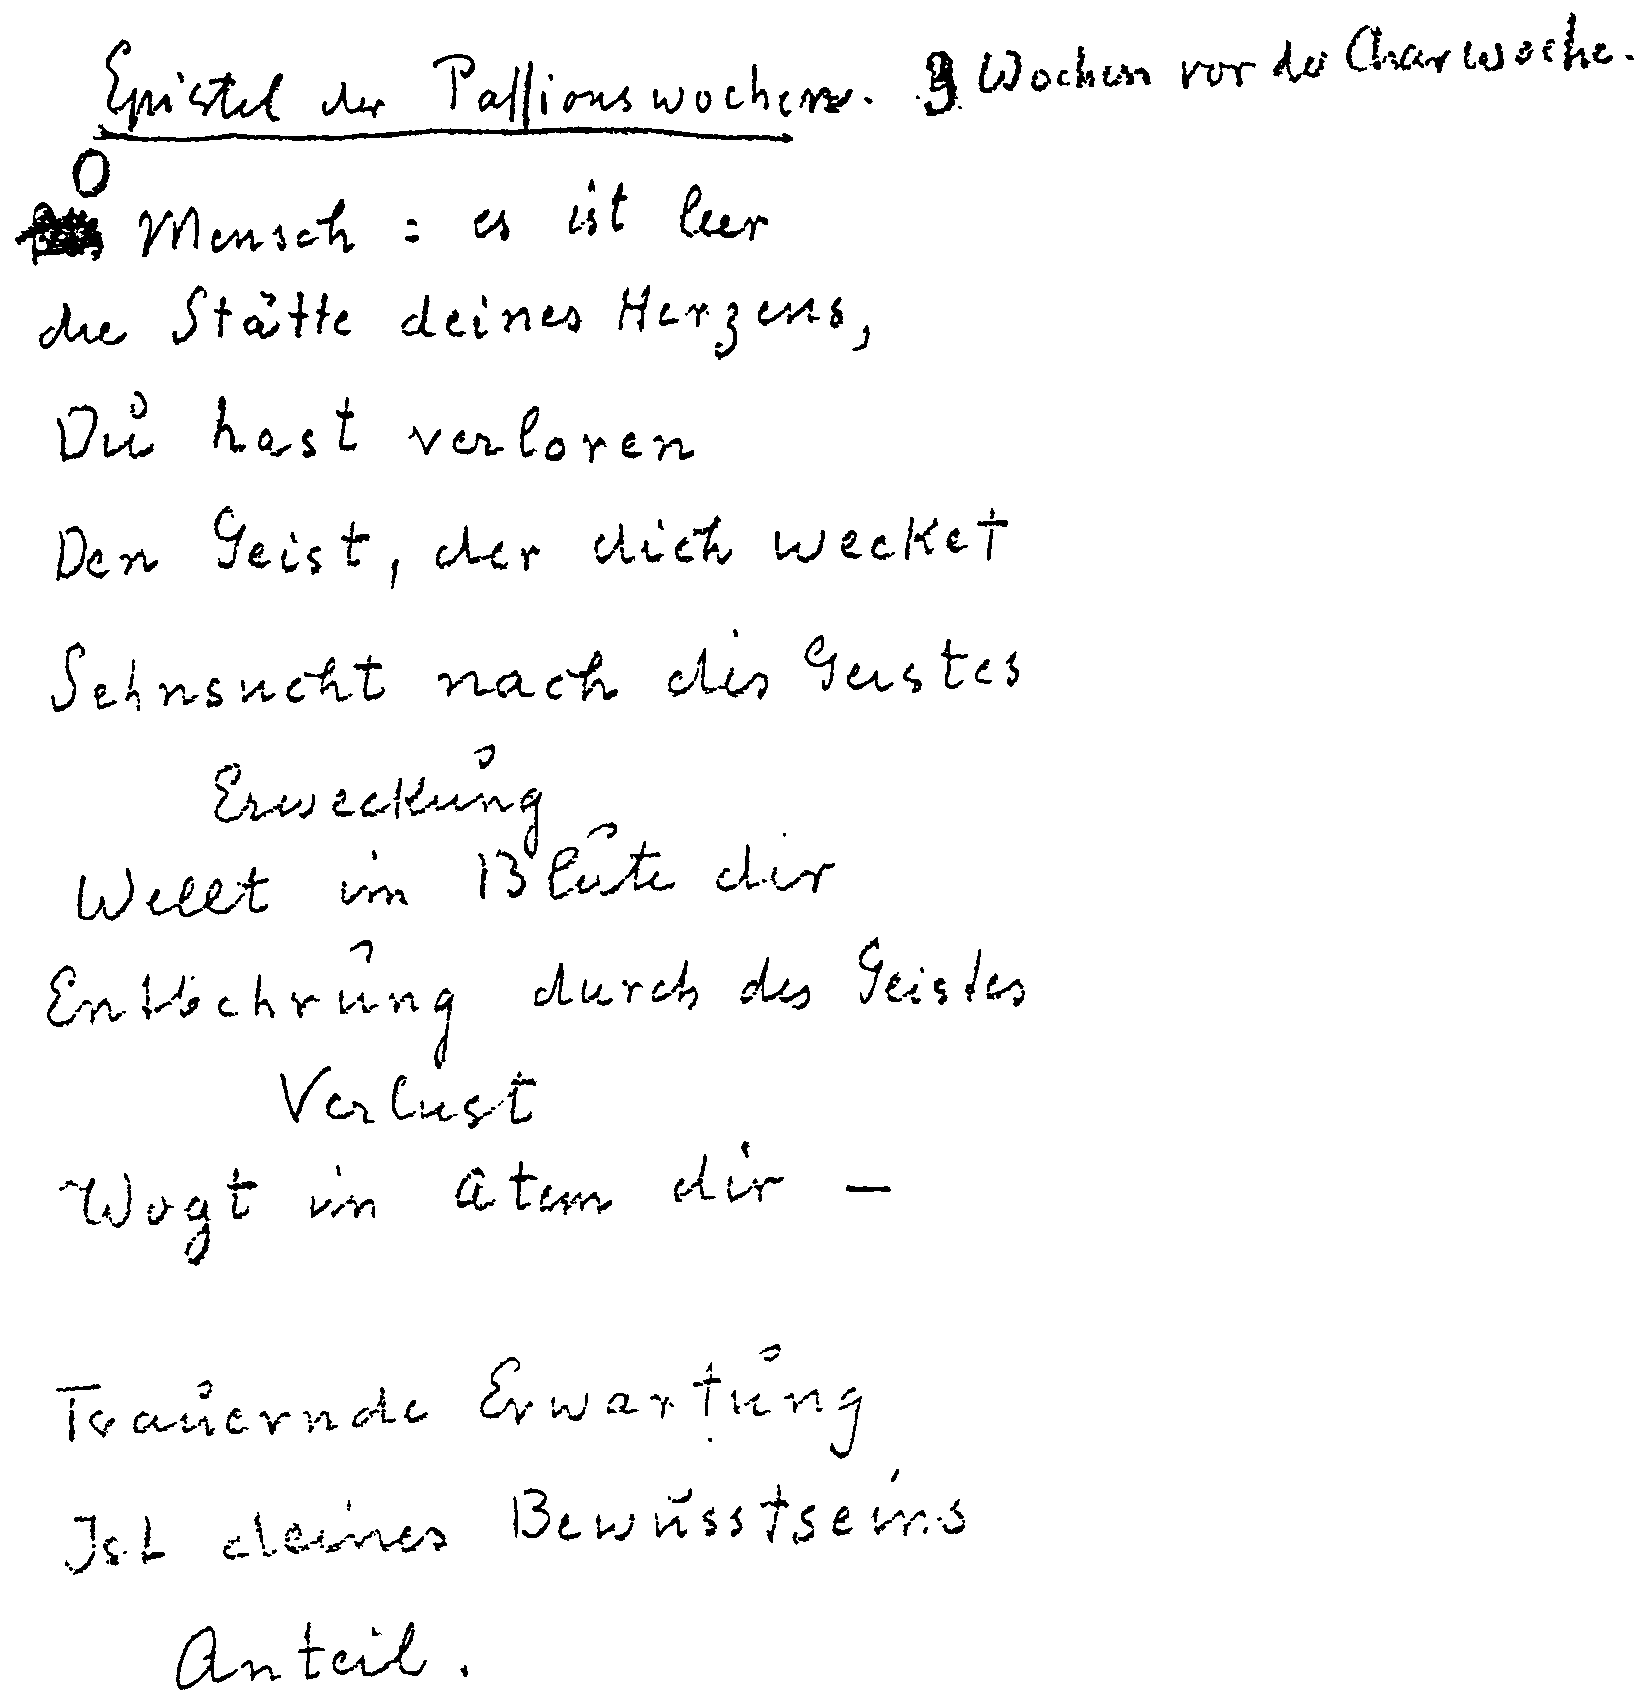 Epistel der Passionswochen. 3 Wochen vor der Charwoche.
O
Mensch : es ist leer
die Stätte deines Herzens,
Du hast verloren
Den Geist, der dich wecket
Sehnsucht nach des Geistes
Erweckung
Wellt im Blute dir
Entbehrung durch des Geistes
Verlust
Wogt im Atem dir —
Trauernde Erwartung
Ist deines Bewusstseins
Anteil.